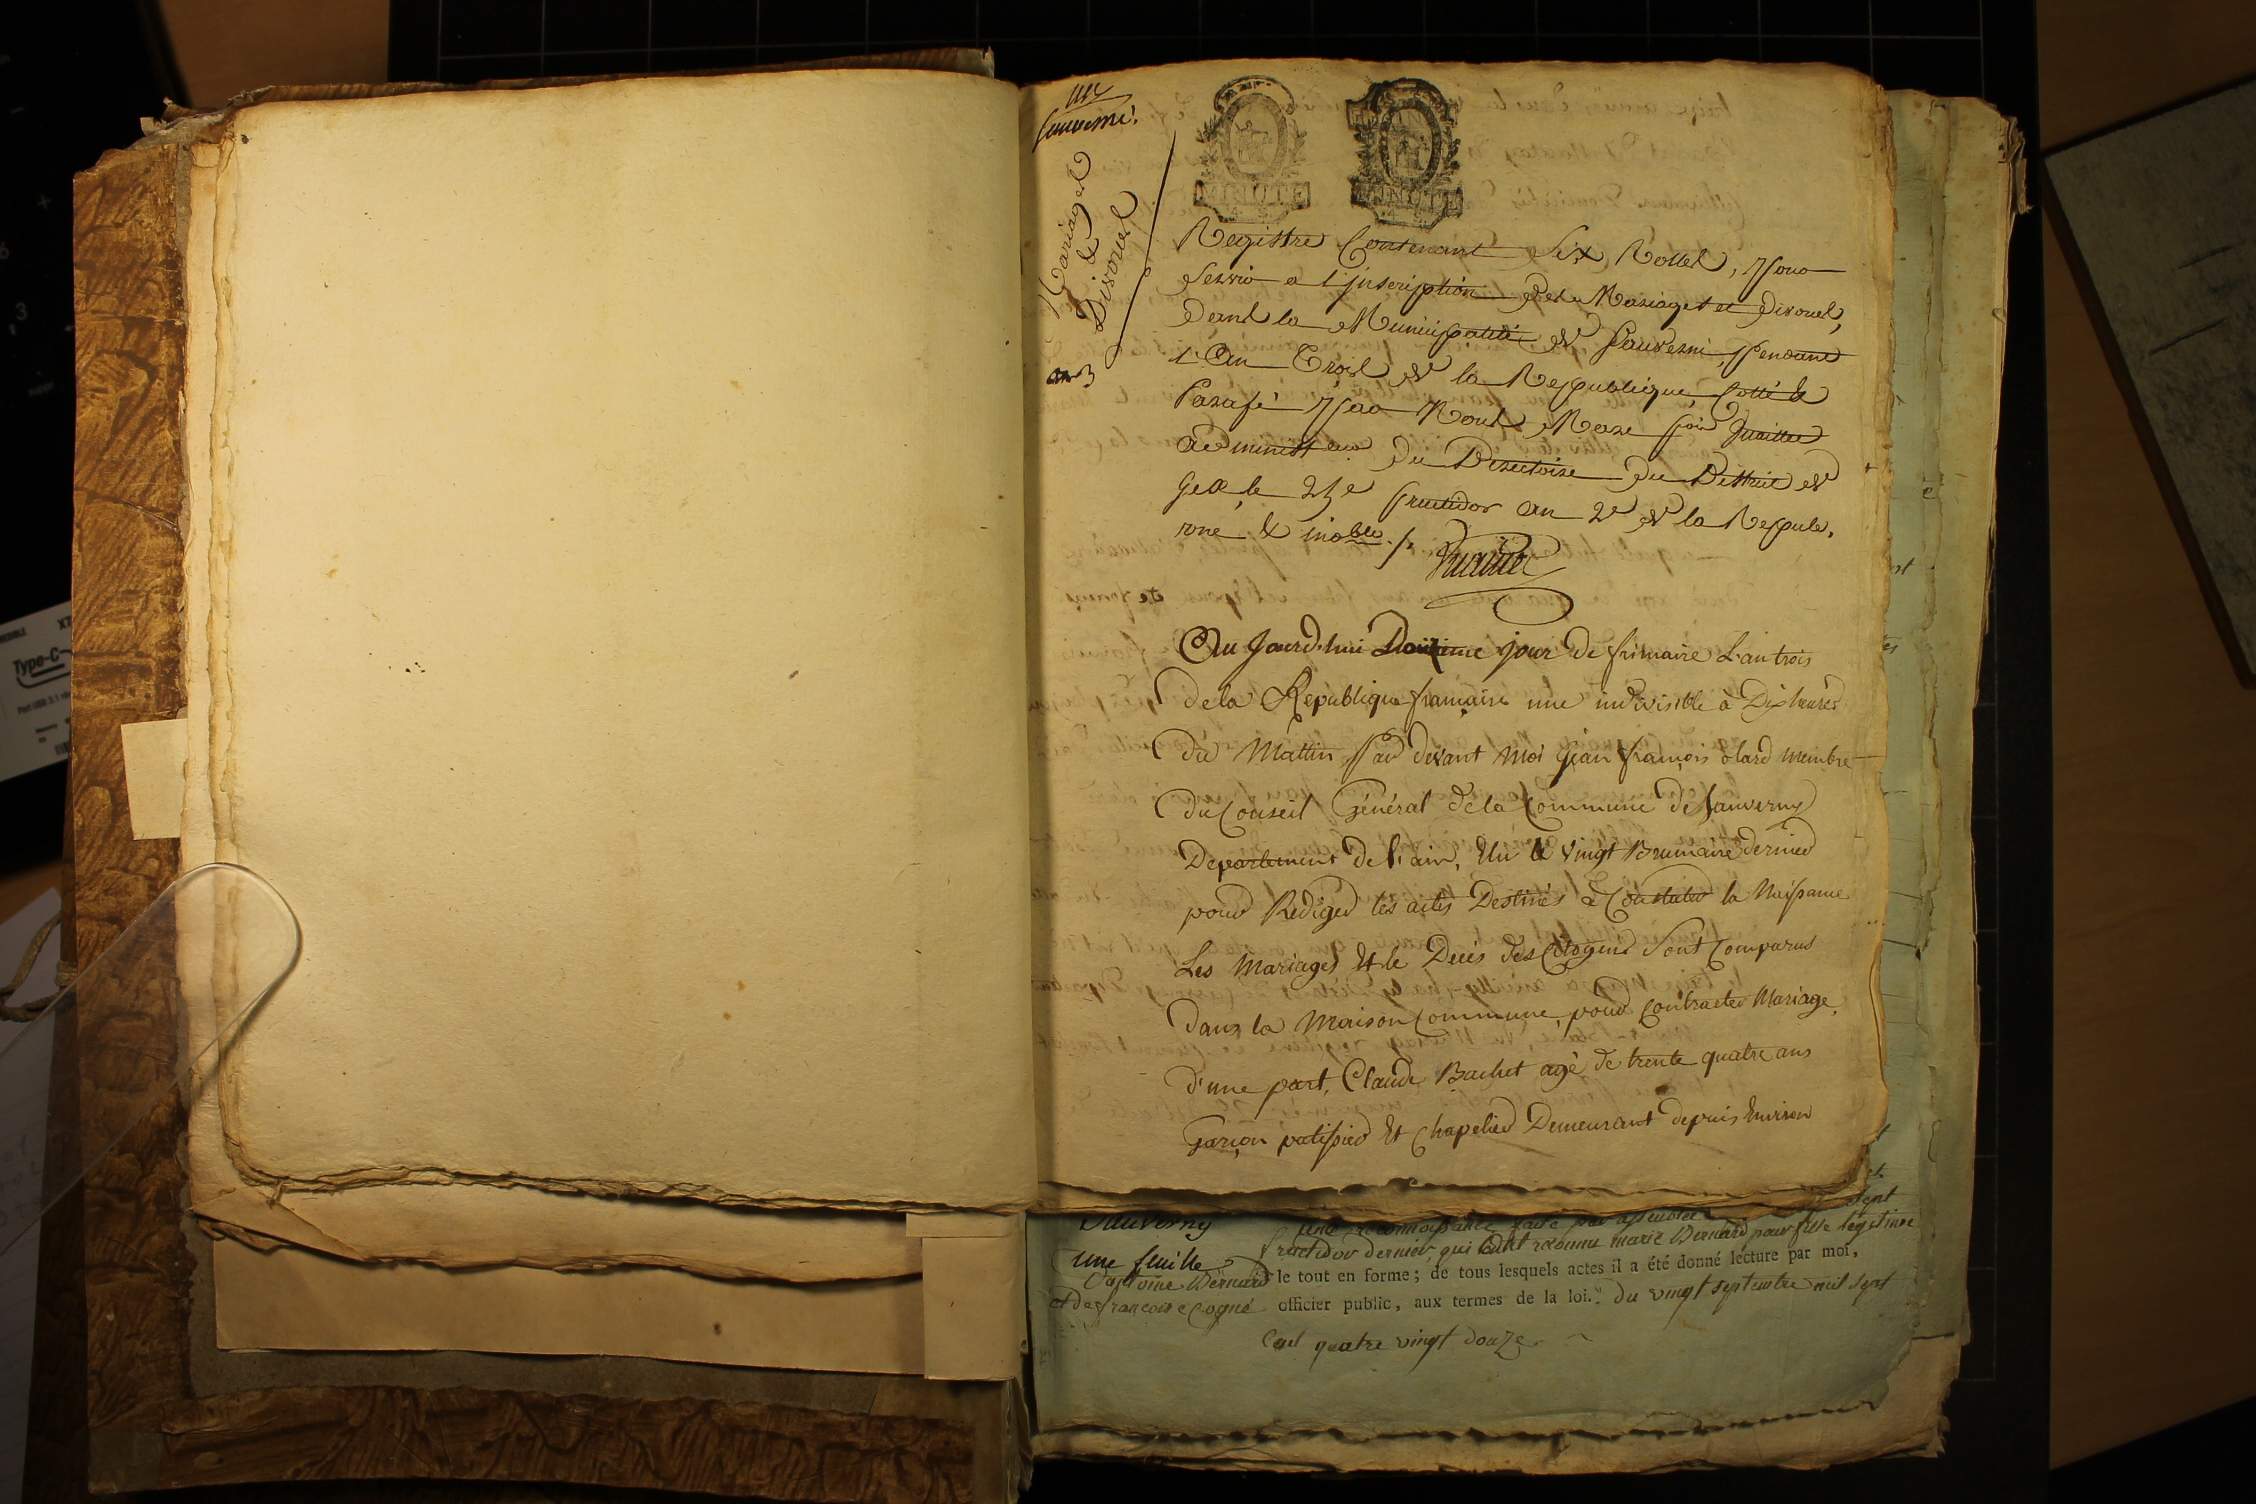 un
Sauverni.
Mariages
&
Divorces
an 3
MINUTE
MINUTE
Registre Contenant Six Rolles, pour
servir a l'inscription des Mariages et Divorces,
dans la Municipalité de Sauverni, pendant
l'an Trois de la Republique, Cotté &
Parafé par Nous Marc
administrateur du Directoire du District de
Gex le fructidor an 2e de la Republ.
une & indble ./.
Aujourd'hui jour de frimaire L'an trois
de la Republique française une indivisible à Dix heures
du Mattin par devant Moi Jean françois olard membre
du Conseil Général de la Commune de Sauverny
Departement de l'ain, élu le vingt Brumaire dernier
pour Rediger les actes Destinés à Constater la Naissance
Les Mariages et le Decés des Citoyens Sont Comparus
dans la Maison Commune, pour Contracter Mariage,
d'une part, Claude Bachet agé de trente quatre ans
Garçon patissier et Chapelier Demeurant depuis Environ
Sauverny
une feuille
une reconnoissance faite par assemblée
fructidor dernier, qui reconnu marie Bernard pour fille légitime
d'antoine Bernard le tout en forme; de tous lesquels actes il a été donné lecture par moi,
et de françoise cogné officier public, aux termes de la loi. Du vingt septembre mil sept
cent quatre vingt douze.
Type-C